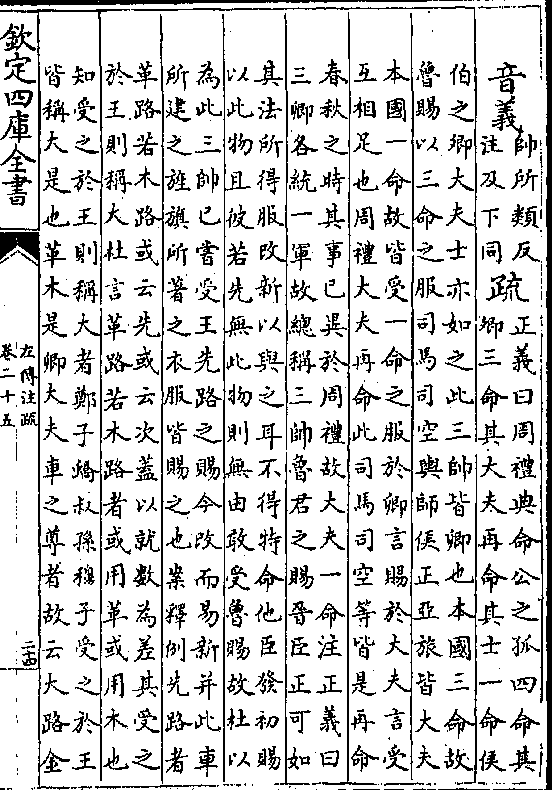 音義帥所類反
注及下同
疏正義曰周禮典命公之孤四命其
卿三命其大夫再命其士一命侯
伯之卿大夫士亦如之此三帥皆卿也本國三命故
魯賜以三命之服司馬司空輿師候正亞旅皆大夫
本國一命故皆受一命之服於卿言賜於大夫言受
互相足也周禮大夫再命此司馬司空等皆是再命
春秋之時其事已異於周禮故大夫一命注正義曰
三卿各統一軍故總稱三帥魯君之賜晉臣正可如
其法所得服改新以與之耳不得特命他臣發初賜
以此物且彼若先無此物則無由敢受魯賜故杜以
為此三帥已嘗受王先路之賜今改而易新并此車
所建之旌旗所著之衣服皆賜之也案釋例先路者
革路若木路或云先或云次蓋以就數為差其受之
於王則稱大杜言革路若木路者或用革或用木也
知受之於王則稱大者鄭子蟜叔孫穆子受之於王
皆稱大是也革木是卿大夫車之尊者故云大路金
欽定四庫全書
左傳注疏
卷二十五
二十四